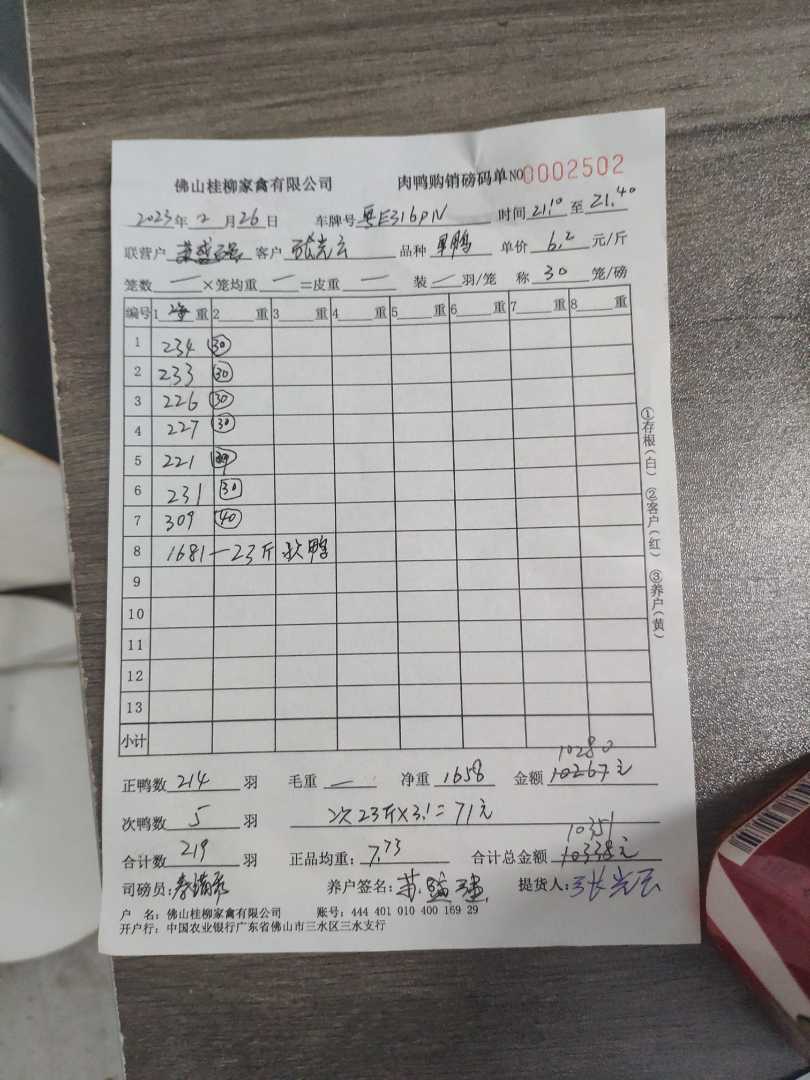 佛山桂柳家禽有限公司 肉鸭购销磅码单 NO 0002502
2023年 2月26日 车牌号 粤E316PN 时间 21.10 至 21.40
联营户 客户 张光云 品种 单价 6.2 元/斤
笼数 — ×笼均重 — =皮重 — 装 — 羽/笼 称 30 笼/磅
编号 1 重 2 重 3 重 4 重 5 重 6 重 7 重 8 重
1 234 30
2 233 30
3 226 30
4 227 30
5 221
6 231 30
7 309 40
8 1681-23斤次鸭
9
10
11
12
13
小计
①存根(白) ②客户(红) ③养户(黄)
10280
正鸭数 214 羽 毛重 — 净重 1658 金额 10267元
次鸭数 5 羽 次23斤×3.1=71元
10351
合计数 219 羽 正品均重: 7.73 合计总金额 10338元
司磅员: 养户签名: 提货人: 张光云
户 名: 佛山桂柳家禽有限公司 账号: 444 401 010 400 169 29
开户行: 中国农业银行广东省佛山市三水区三水支行